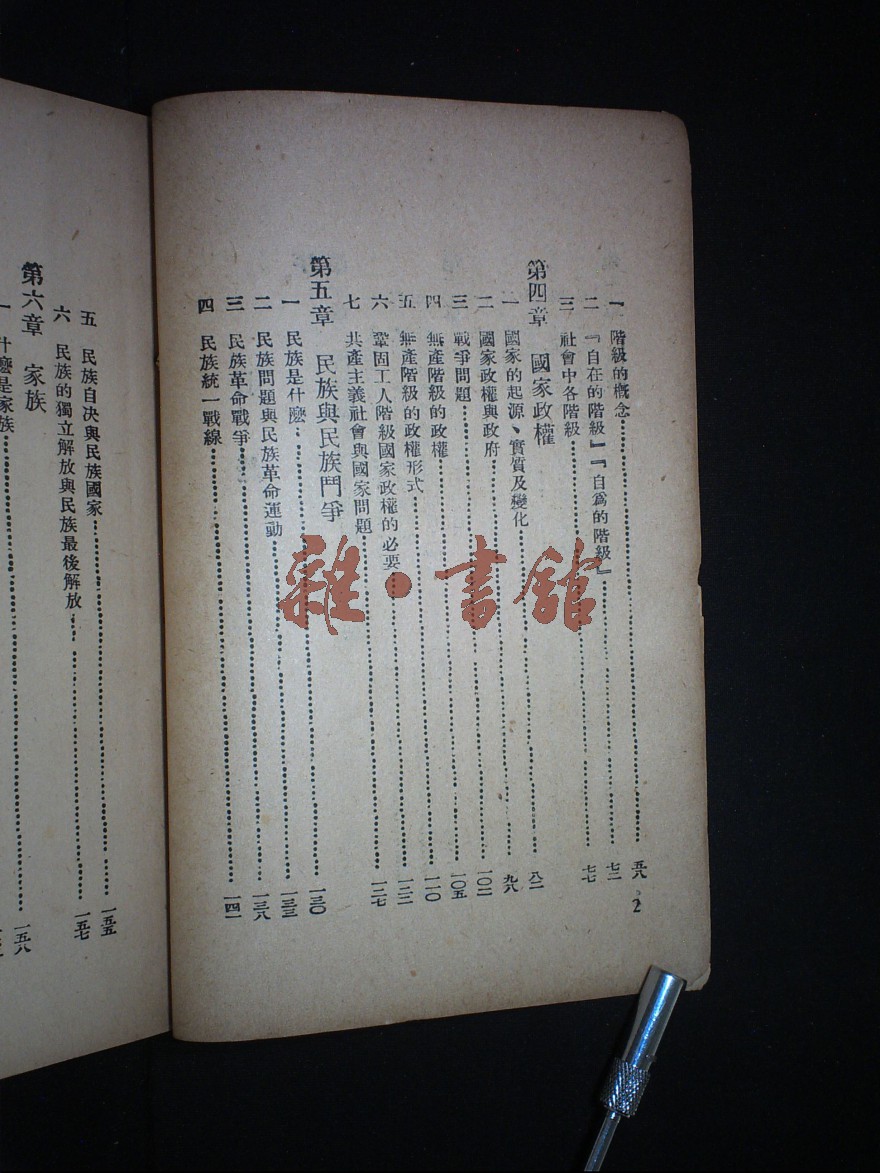 一 階級的概念……五八
二 『自在的階級』『自爲的階級』……七二
三 社會中各階級……七七
第四章 國家政權
一 國家的起源、實質及變化……八二
二 國家政權與政府……九八
三 戰爭問題……一〇二
四 無產階級的政權……一〇五
五 無產階級的政權形式……一一〇
六 鞏固工人階級國家政權的必要……一二二
七 共產主義社會與國家問題……一二七
第五章 民族與民族鬥爭
一 民族是什麽……一三〇
二 民族問題與民族革命運動……一三三
三 民族革命戰爭……一三八
四 民族統一戰線……一四一
2
五 民族自决與民族國家……一五五
六 民族的獨立解放與民族最後解放……一五七
第六章 家族
一 什麽是家族……一五八
雜·書舘